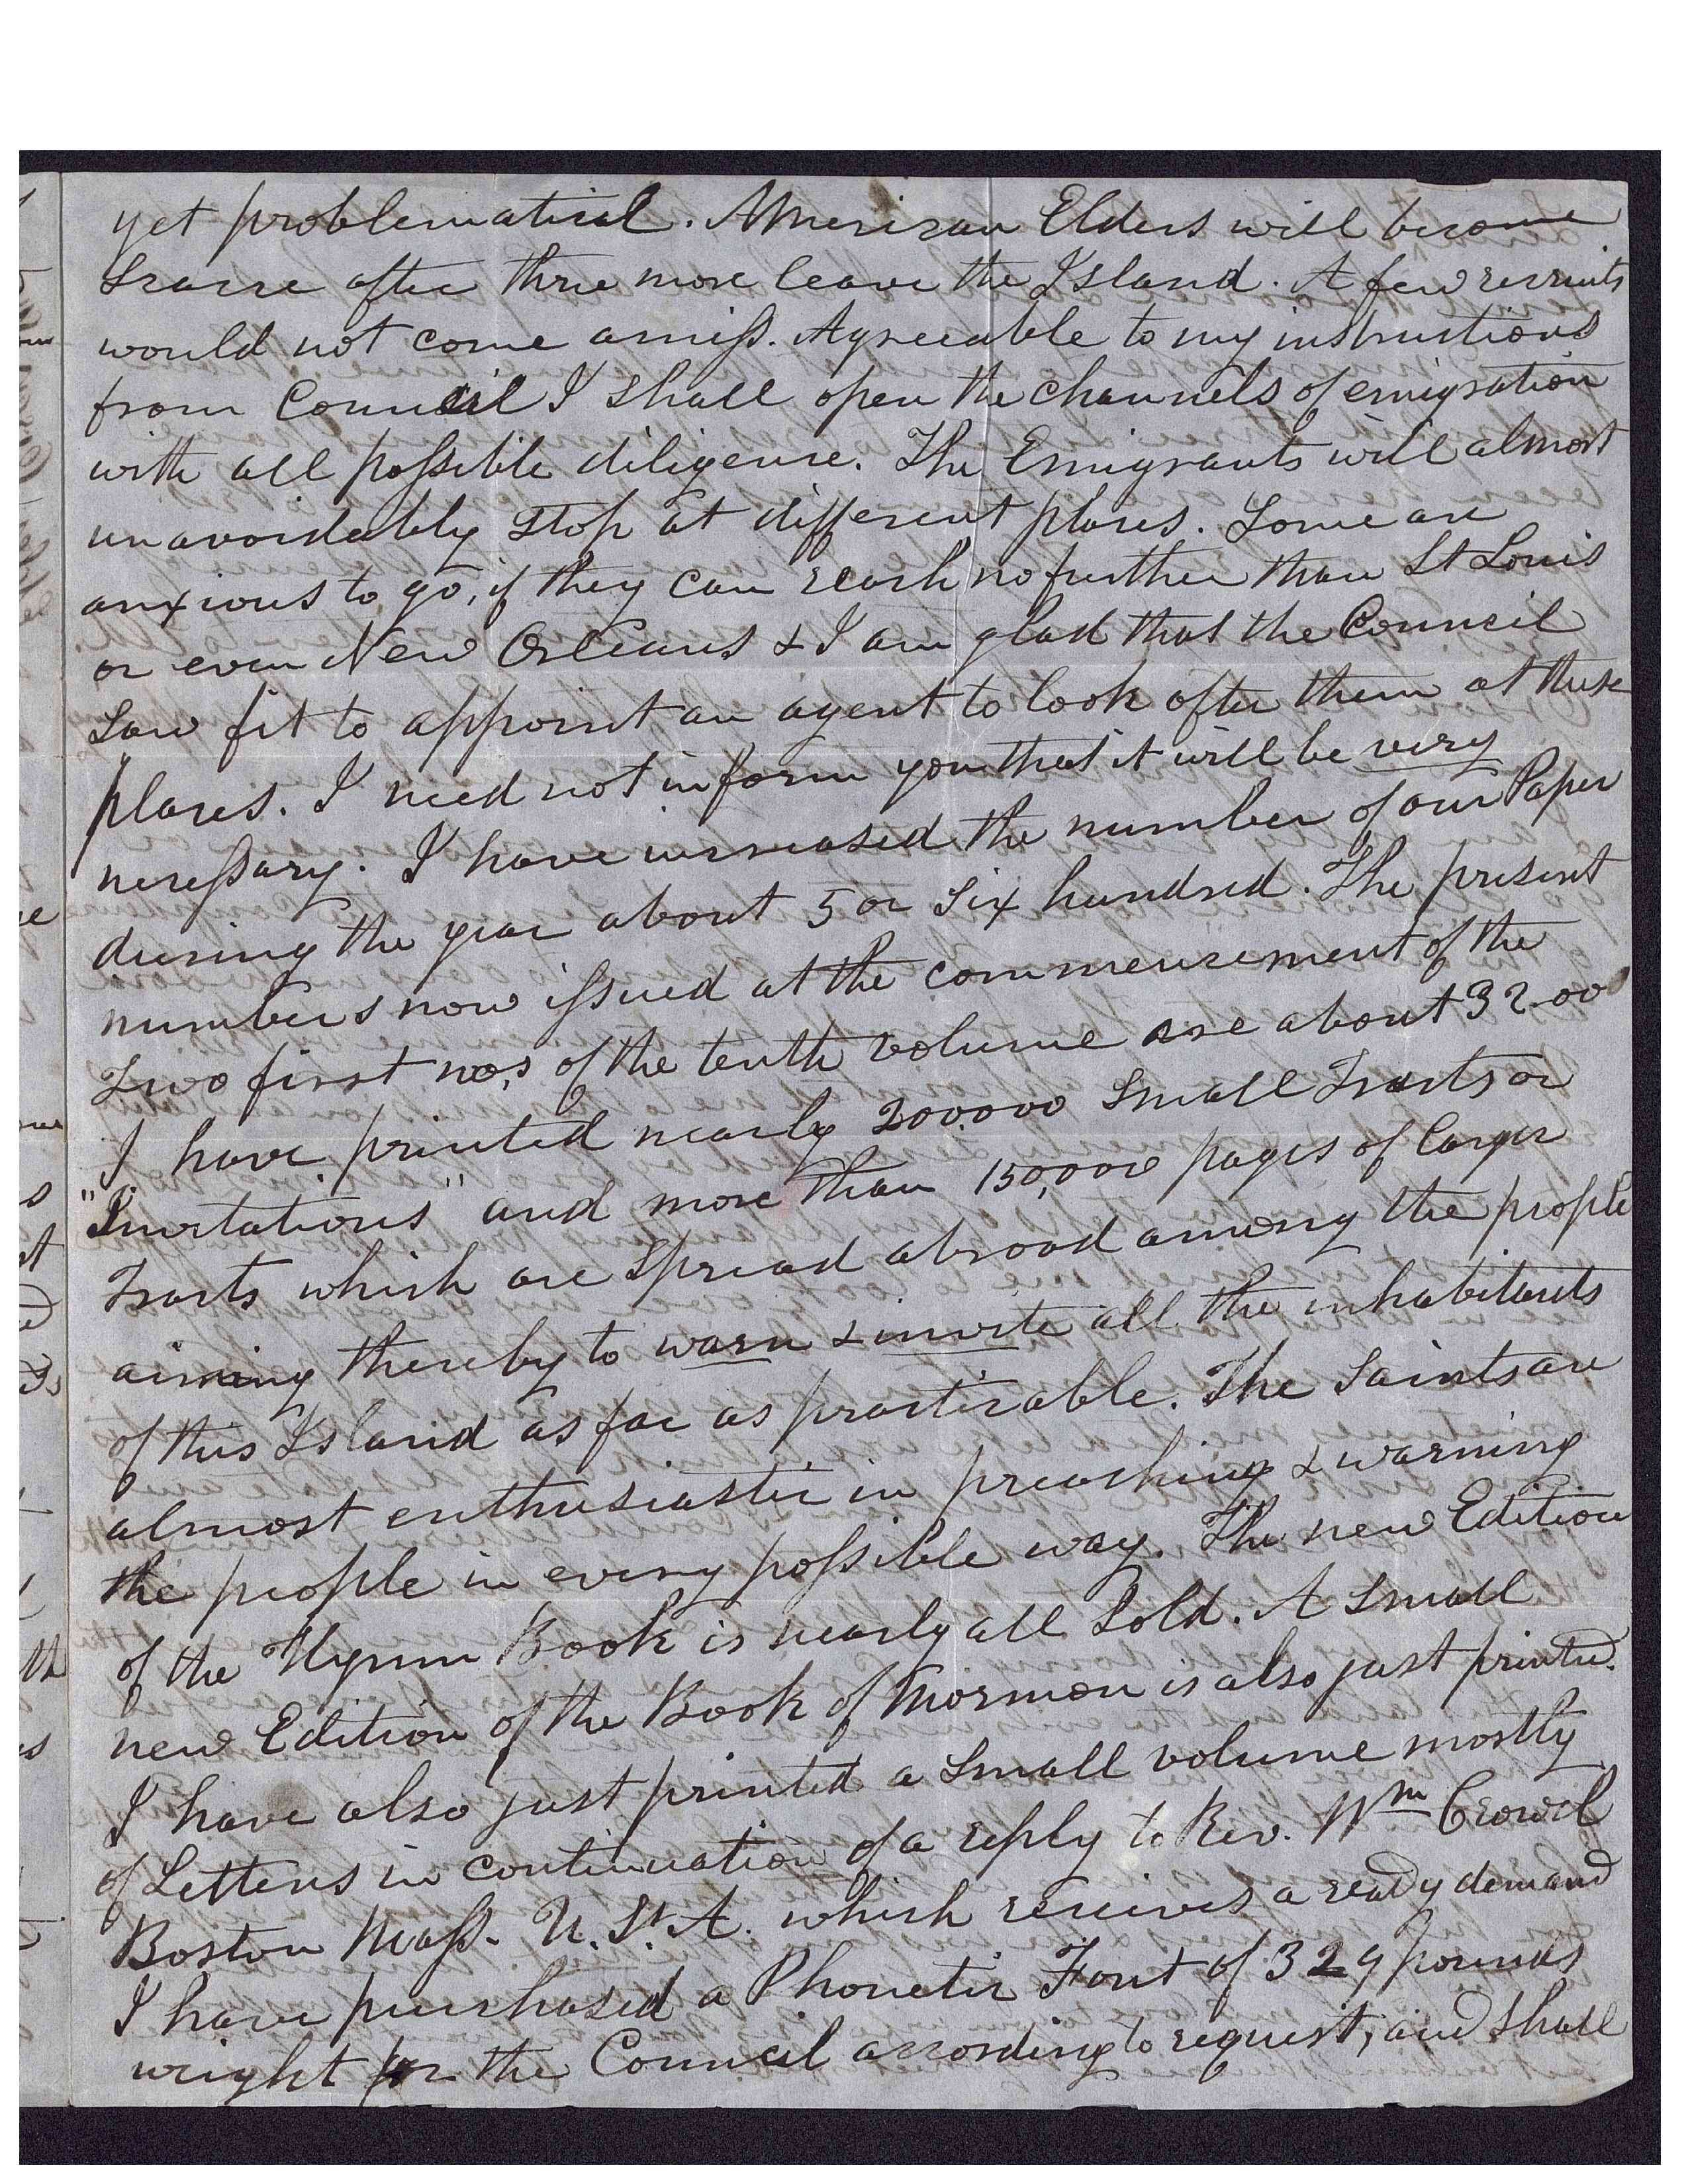 yet problematical. American Elders will become
scarce after three more leave the Island. A few recruits
would not come amiss. Agreeable to my instructions
from Council I shall open the channels of emigration
with all possible diligence. The Emigrants will almost
unavoidably stop at different places. Some are
anxious to go, if they can reach no further than St Louis
or even New Orleans & I am glad that the Council
saw fit to appoint an agent to look after them at these
places. I need not inform you that it will be very
necessary. I have increased the number of our Paper
during the year about 5 or six hundred. The present
numbers now issued at the commencement of the
two first nos, of the tenth volume are about 3200
I have printed nearly 200,000 small Tracts or
"Invitations" and more than 150,000 pages of larger
Tracts which are spread abroad among the people
aiming thereby to warn & invite all the inhabitants
of this Island as far as practicable. The Saints are
almost enthusiastic in preaching & warning
the people in every possible way. The new Edition
of the Hymn Book is nearly all sold. A small
new Edition of the Book of Mormon is also just printed.
I have also just printed a small volume mostly
of Letters in continuation of a reply to Rev. Wm Crowel
Boston Mass. U. St. A. which receives a ready demand
I have purchased a Phonetic Font of 329 pounds
weight for the Council according to request, and shall